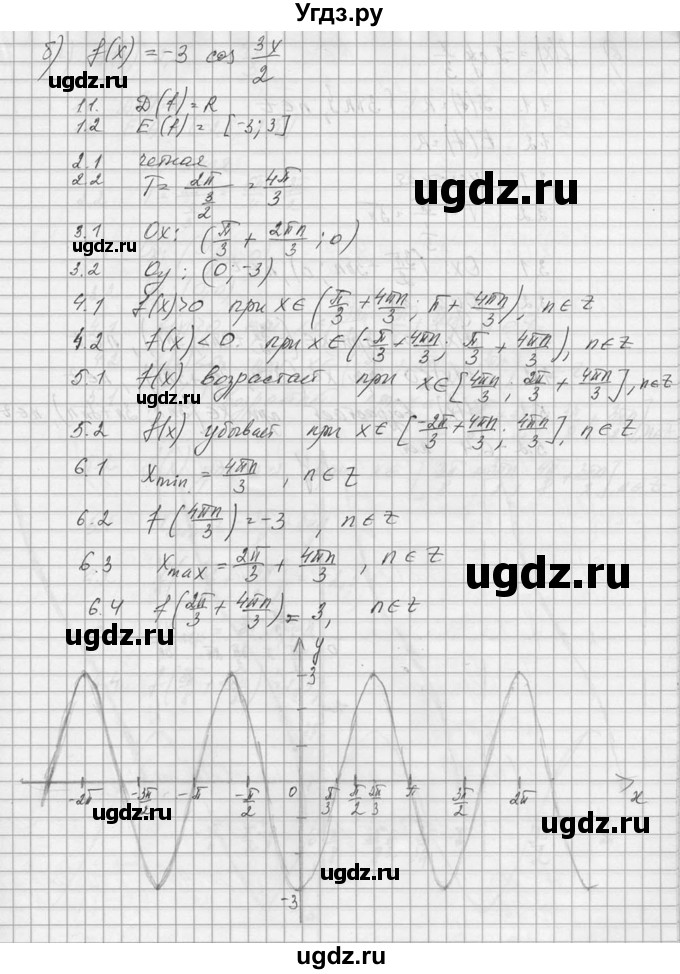 Угдз.ру
б) f(x) = -3 cos 3x/2
ugdz.ru
1.1. D(f) = R
1.2 E(f) = [-3; 3]
2.1 четная
2.2 T = 2π/(3/2) = 4π/3
ugdz.ru
3.1 Ox: (π/3 + 2πn/3; 0)
ugdz.ru
3.2 Oy: (0; -3)
4.1 f(x)>0 при x∈(π/3 + 4πn/3; π + 4πn/3), n∈Z
4.2 f(x)<0 при x∈(-π/3 + 4πn/3; π/3 + 4πn/3), n∈Z
5.1 f(x) возрастает при x∈[4πn/3; 2π/3 + 4πn/3], n∈Z
ugdz.ru
5.2 f(x) убывает при x∈[-2π/3 + 4πn/3; 4πn/3], n∈Z
6.1 xmin = 4πn/3, n∈Z
6.2 f(4πn/3) = -3, n∈Z
6.3 xmax = 2π/3 + 4πn/3, n∈Z
ugdz.ru
6.4 f(2π/3 + 4πn/3) = 3, n∈Z
ugdz.ru
y
3
-2π -3π/2 -π -π/2 0 π/3 π/2 π 3π/2 2π x
ugdz.ru
ugdz.ru
ugdz.ru
-3
ugdz.ru